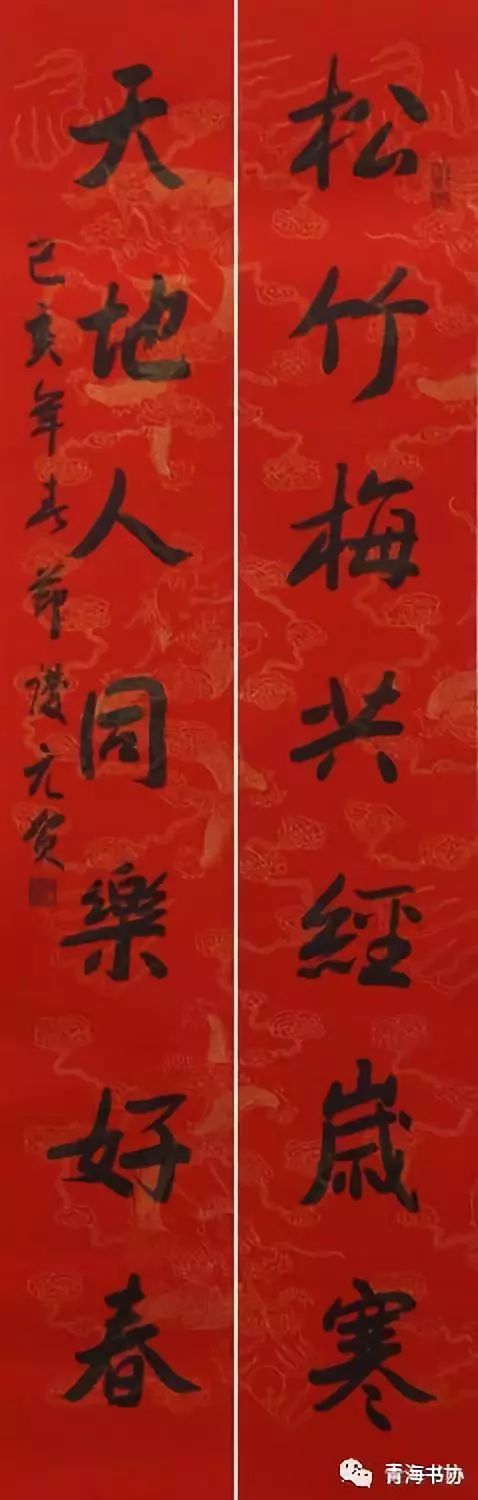 松竹梅共經歲寒
天地人同樂好春
己亥年春節
青海书协